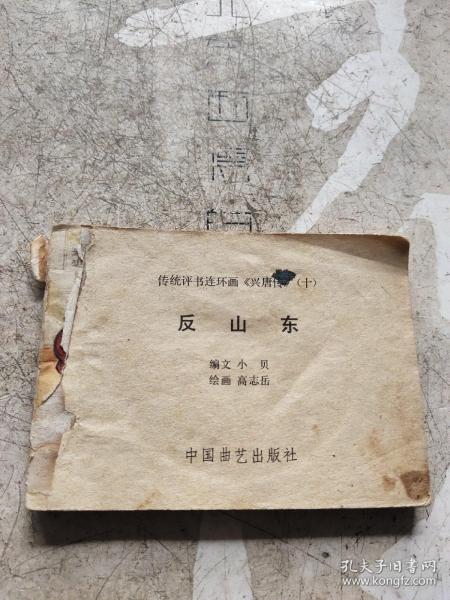 传统评书连环画《兴唐传》(十)
反山东
编文 小贝
绘画 高志岳
中国曲艺出版社
孔夫子旧书网
www.kongfz.com